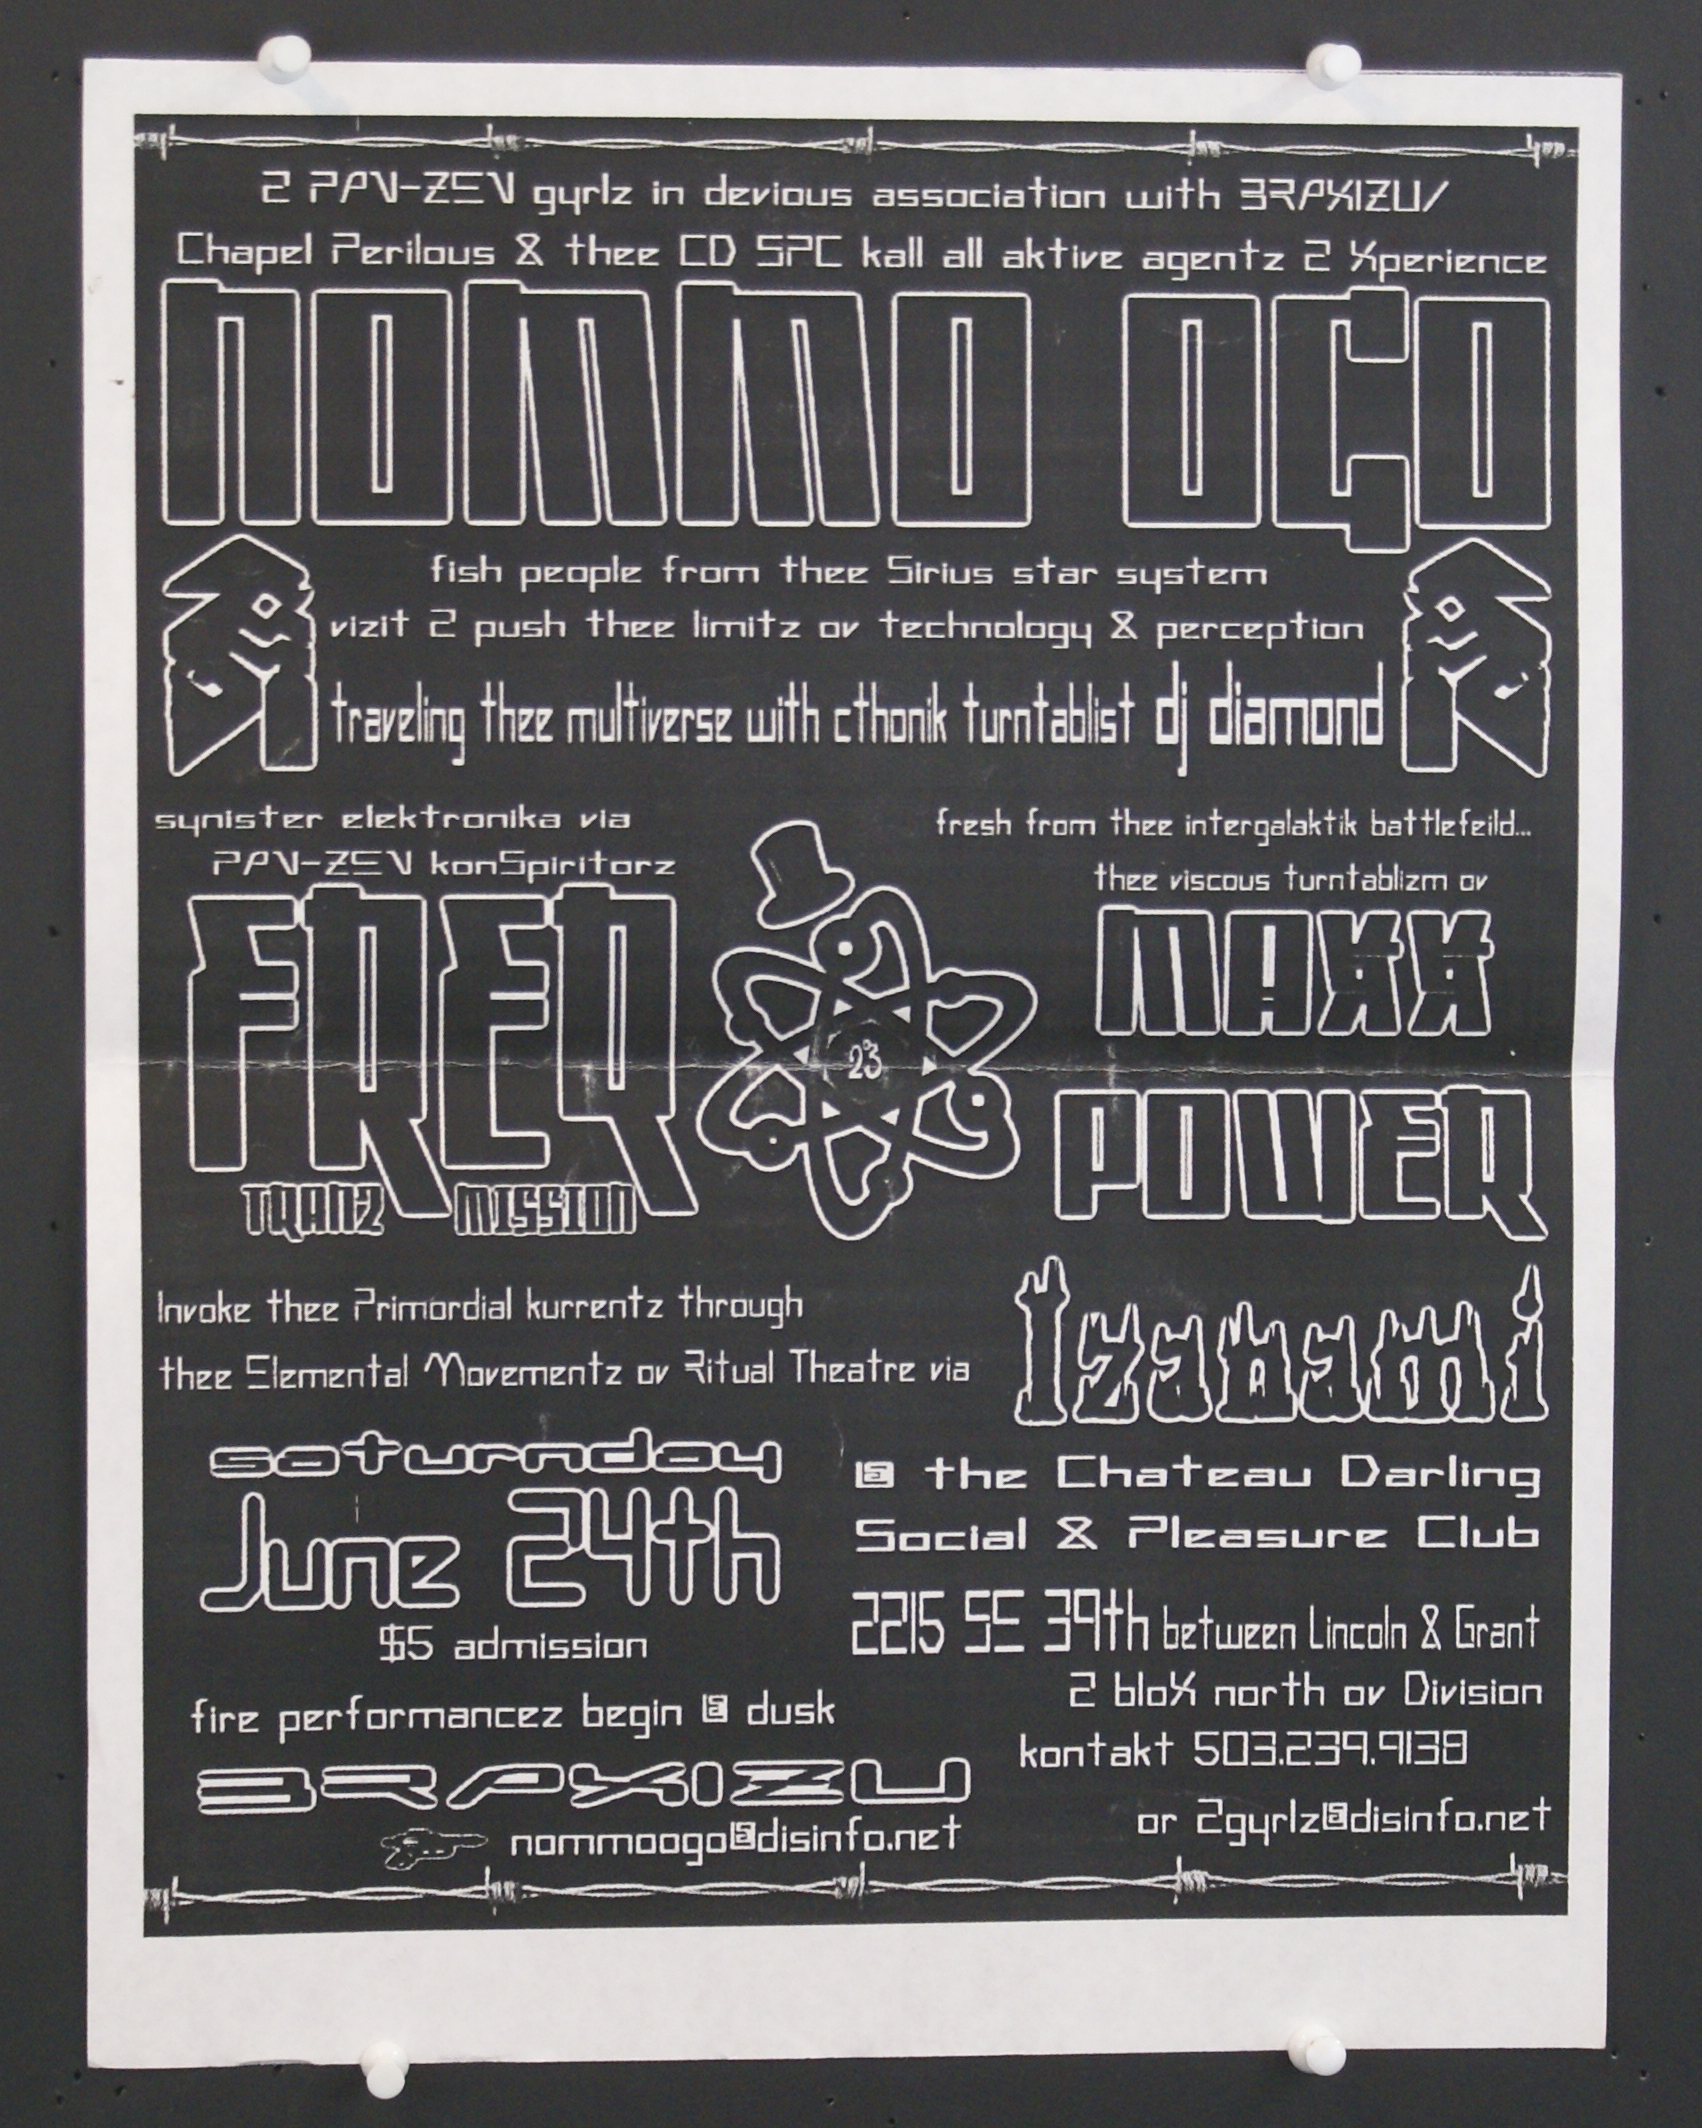 2 PAN-ZEN gyrlz in devious association with BRAXIZU/
Chapel Perilous & thee CD SPC kall all aktive agentz 2 Xperience
nommo oço
fish people from thee Sirius star system
vizit 2 push thee limitz ov technology & perception
traveling thee multiverse with cthonik turntablist dj diamond
synister elektronika via
PAN-ZEN konSpiritorz
FREQ
TRANZ MISSION
23
fresh from thee intergalaktik battlefeild...
thee viscous turntablizm ov
MAXX
POWER
Invoke thee Primordial kurrentz through
thee Elemental Movementz ov Ritual Theatre via
Izanami
saturnday
June 24th
$5 admission
fire performancez begin @ dusk
BRAXIZU
nommoogo@disinfo.net
@ the Chateau Darling
Social & Pleasure Club
2215 SE 39th between Lincoln & Grant
2 bloX north ov Division
kontakt 503.239.9138
or 2gyrlz@disinfo.net